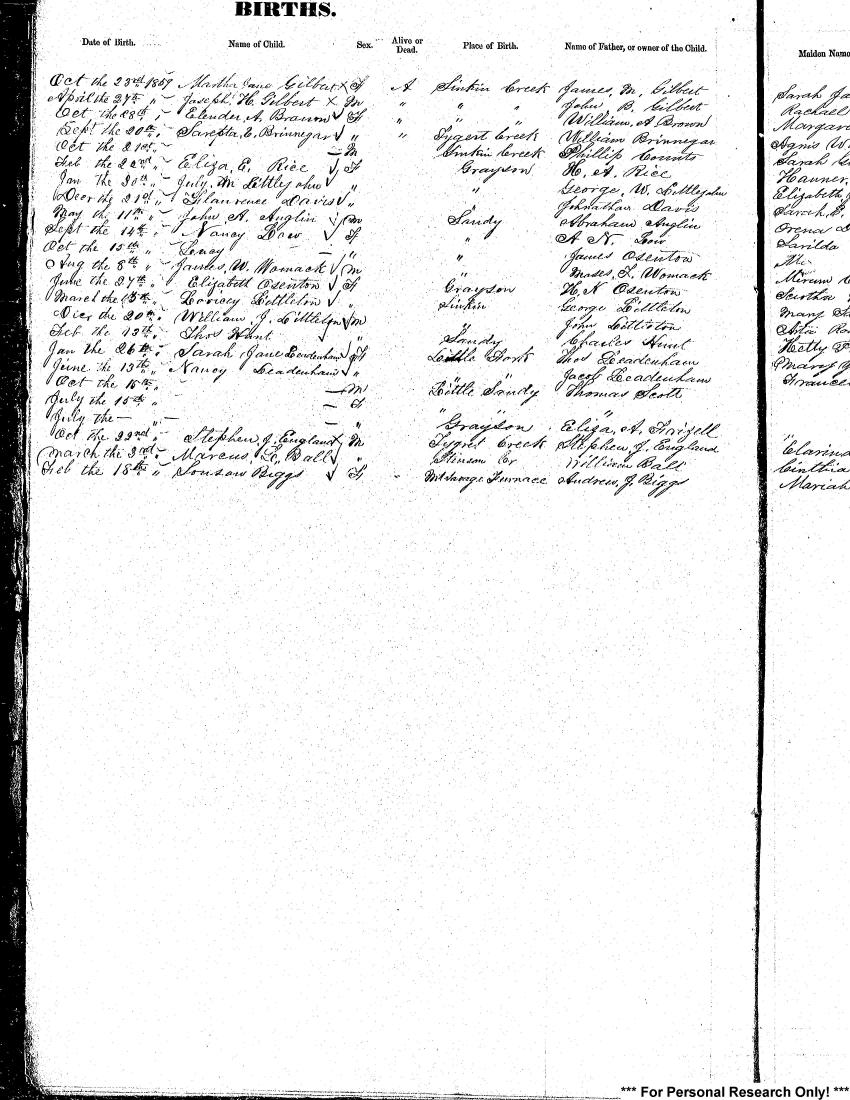 BIRTHS.
Date of Birth. Name of Child. Sex. Alive or Dead. Place of Birth. Name of Father, or owner of the Child. Maiden Name
Oct the 23rd 1859 Martha Jane Gilbert x F A Sinkin Creek James, M, Gilbert Sarah Ja
April the 27th " Joseph, H. Gilbert x M " " " John B. Gilbert Rachael
Oct, the 28th " Elender, A. Brown √ F " " " William, A Brown Margare
Sept the 20th " Sarepta, E, Brinnegar √ " " Tygert Creek William Brinnegar Agnis W
Oct the 21st " — M Sinkin Creek Phillip Counts Sarah
Feb the 22nd " Eliza, E. Rice √ F Grayson H, A, Rice Hanner,
Jan the 30th " July, M Littlejohn √ " " George, W. Littlejohn Elizabeth
Decr the 21st " Davis √ " Johnathan Davis Sarah, E.
May the 11th " John A. Anglin √ M Sandy Abraham Anglin Orena
Sept the 14th " Nancy Low √ F " A N. Low Sarilda
Oct the 15th " Lency — " " James Osenton
Aug the 8th " James, W. Womack √ M " Moses, L. Womack
June the 27th " Elizabeth Osenton √ F Grayson H, N Osenton
March the 15th " Littleton √ " Sinkin George Littleton Mary
Decr the 20th " William, J. Littleton √ M " John Littleton
Feb the 13th " Thos Hunt √ " Sandy Charles Hunt Hetty
Jan the 26th " Sarah Jane Leadenham √ F Little Fork Thos Leadenham Mary
June the 13th " Nancy Leadenham √ " " " Jacob Leadenham France
Oct the 15th " — M Little Sandy Thomas Scott
July the 15th " — F
July the — — " " " "
Oct the 22nd " Stephen, J. England x M Grayson Eliza, A. Frizell
March the 3rd " Marcus, L. Ball √ " Tygret Creek Stephen, J. England "Clarind
Feb the 18th " Biggs √ F Stinson Cr William Ball Cinthia
Mt Savage Furnace Andrew, J. Biggs Mariah
*** For Personal Research Only! ***